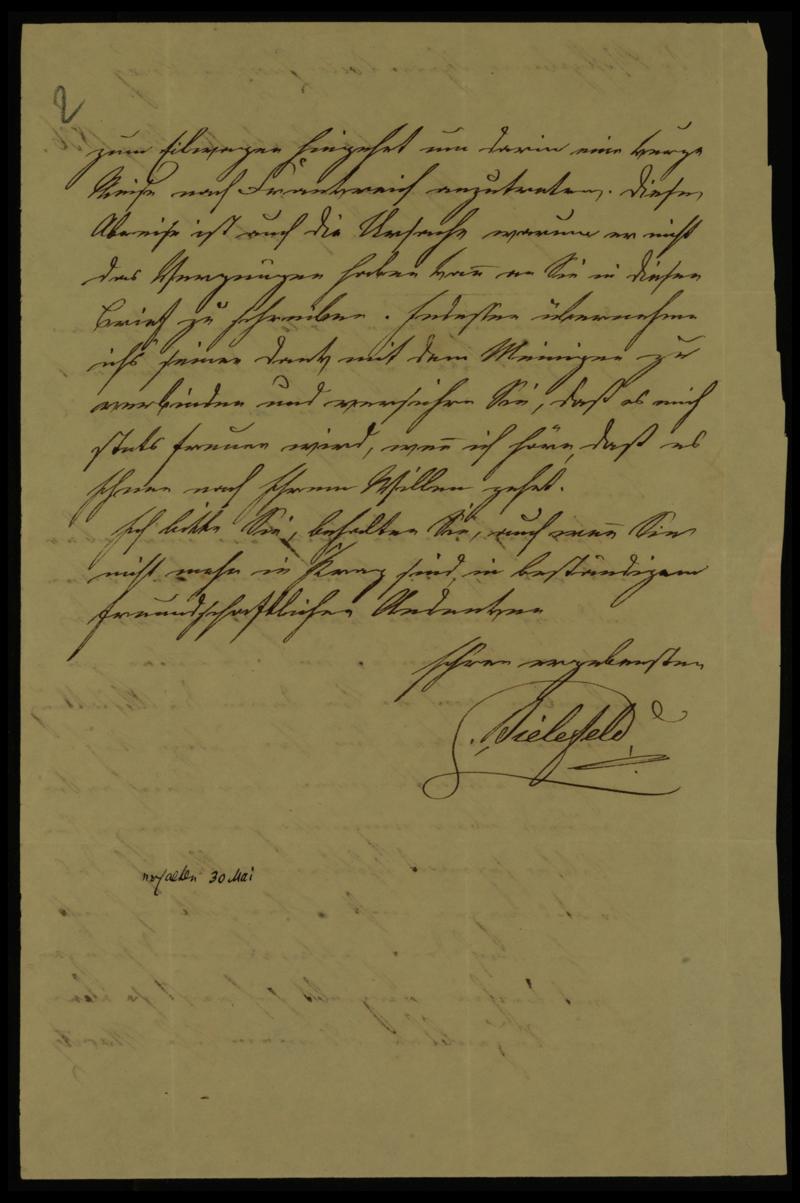 2
zum Eilwagen hingehet um darin eine kurze
Reise nach Frankreich anzutreten. Diese
Abreise ist auch die Ursache warum er nicht
das Vergnügen haben kan̅ an Sie in diesen
Brief zu schreiben. Indessen übernehme
ichs seinen Dank mit dem Meinigen zu
verbinden und versichre Sie, daß es mich
stets freuen wird, wen̅ ich höre, daß es
Ihnen nach Ihrem Willen gehet.
Ich bitte Sie, behalten Sie, auch wen̅ Sie
nicht mehr in Prag sind, in beständigem
freundschaftlichen Andenken
Ihren ergebensten
Bielefeld
erhalten 30 Mai